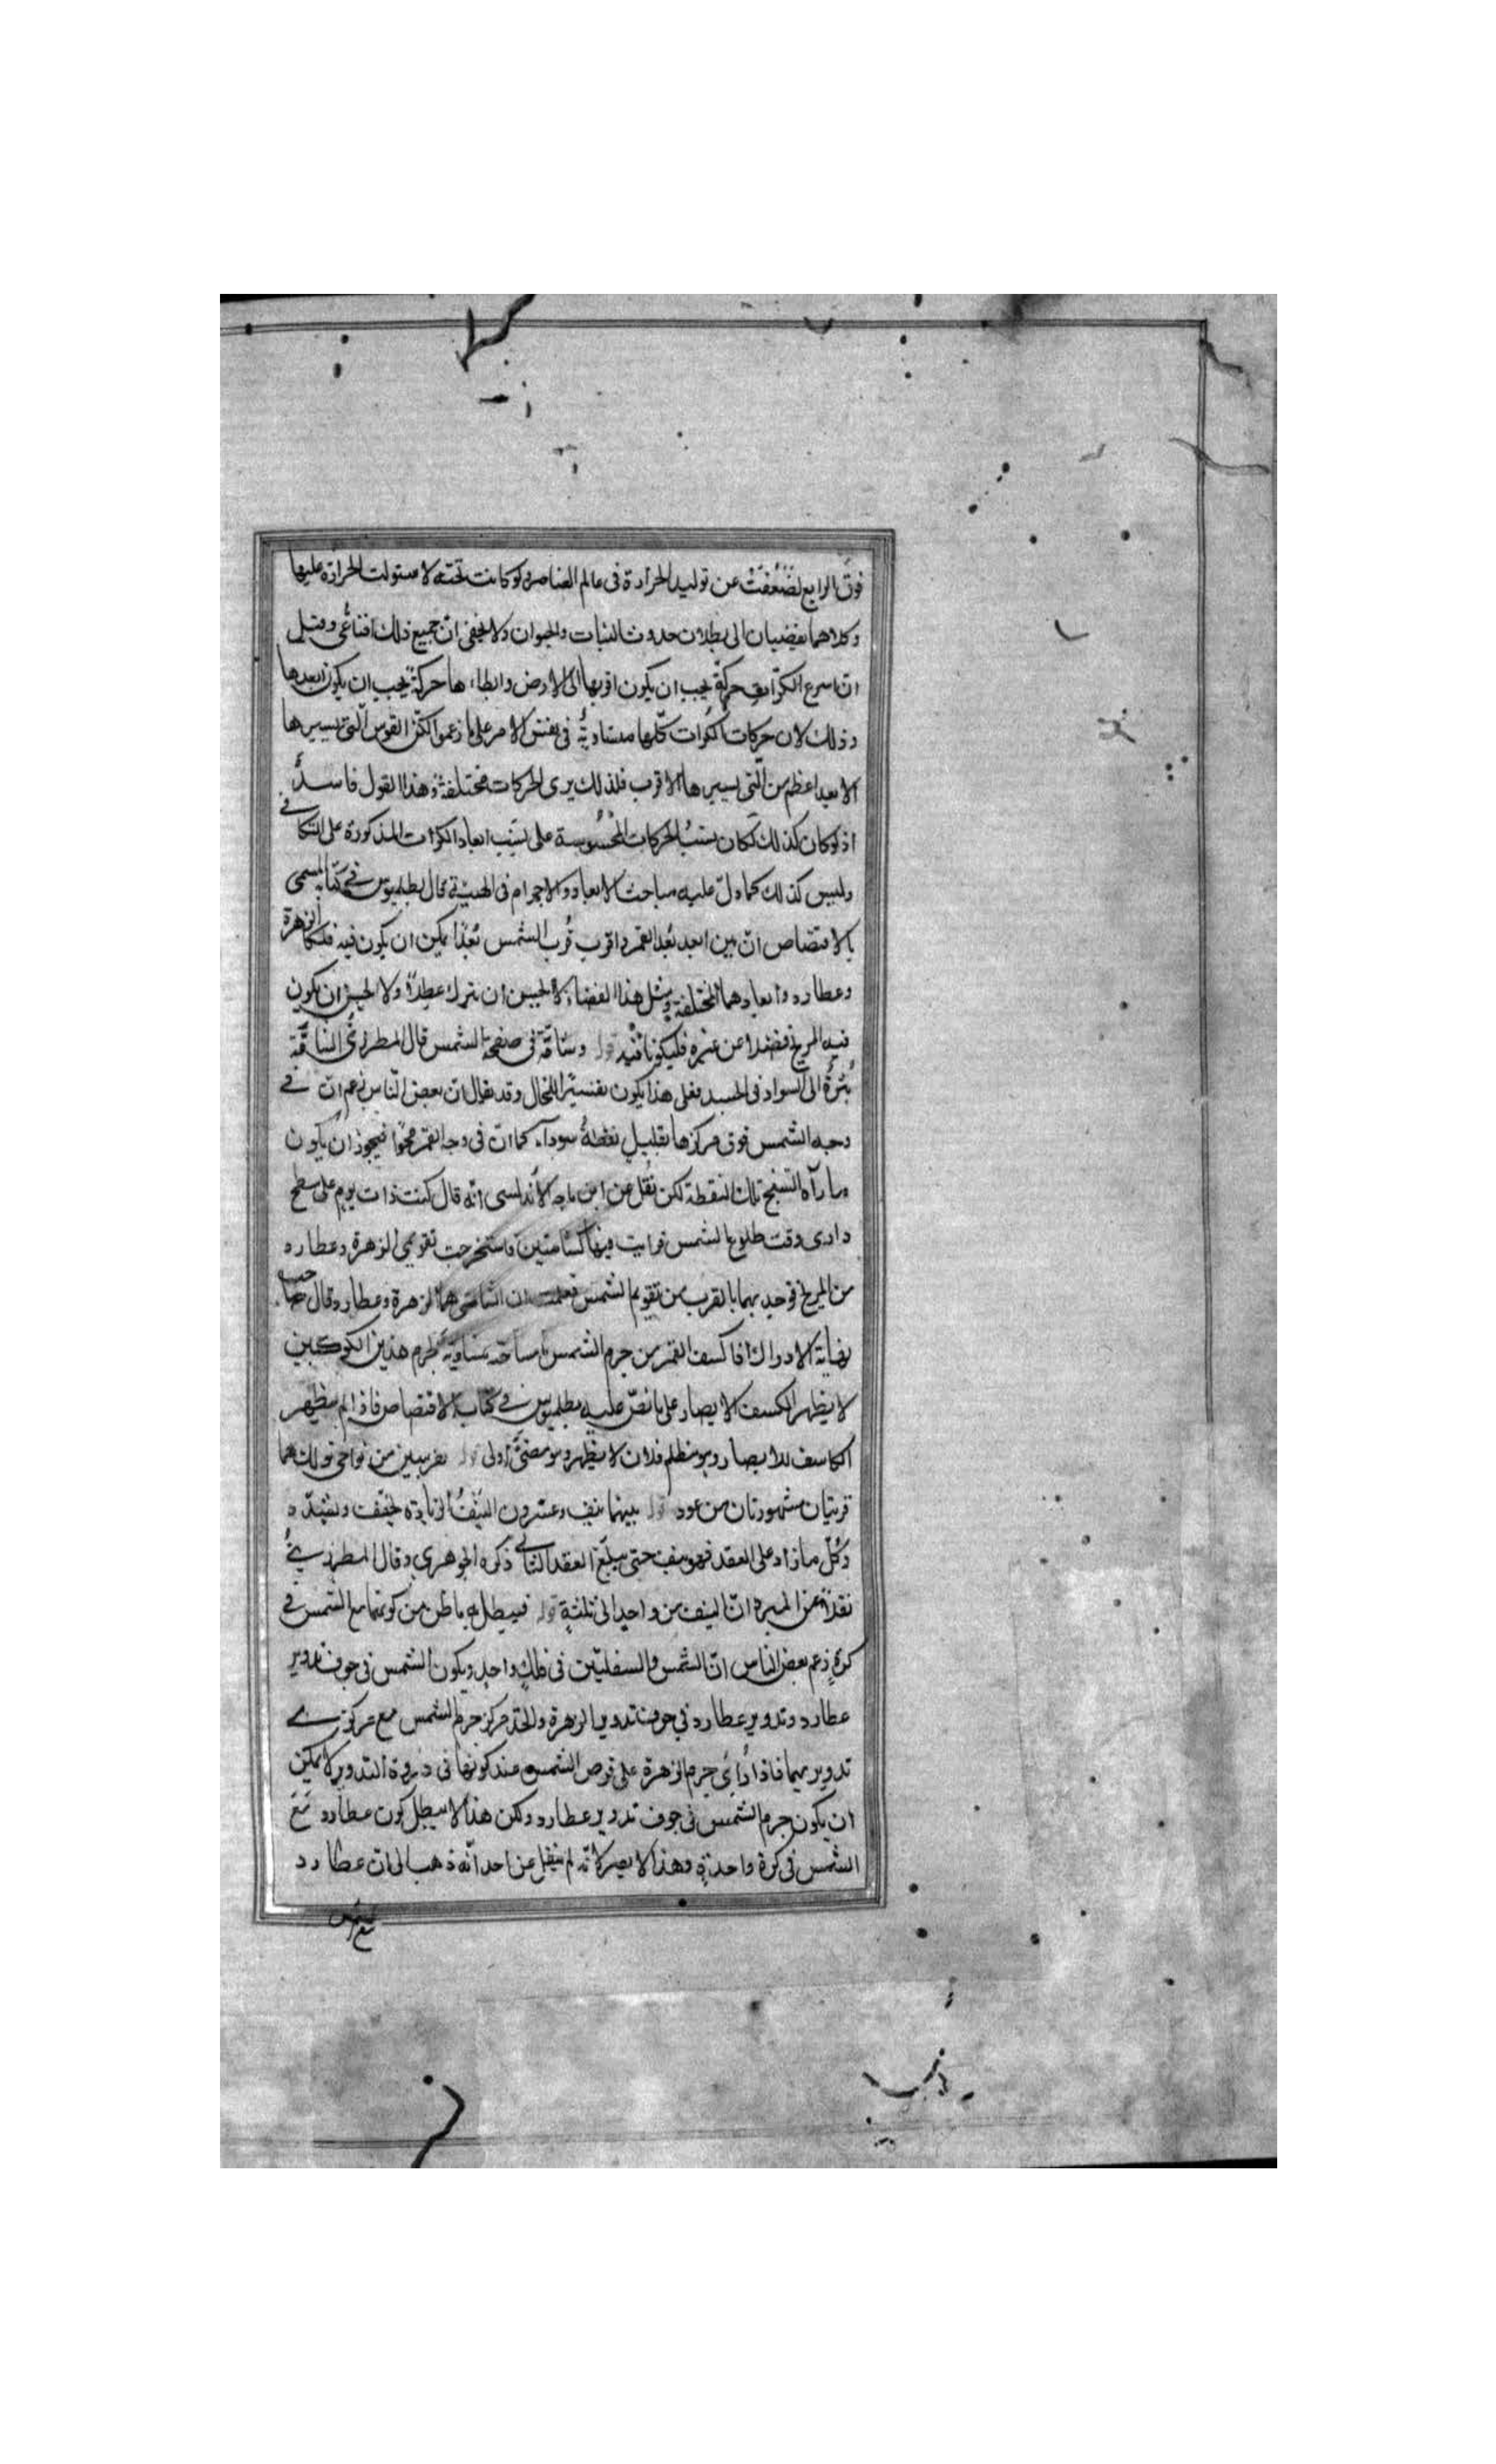 فوق الرابع لضعفت عن توليد الحرارة فى عالم العناصر ولو كانت تحته لاستولت الحرارة عليها
وكلاهما يفضيان الى بطلان حدوث النبات والحيوان ولا يخفى انّ جميع ذلك اقناعىّ وقيل
انّ اسرع الكرات حركةً يجب ان يكون اقربها الى الارض وابطاءها حركةً يجب ان يكون ابعدها
وذلك لان حركات الكُرات كلّها متساويةٌ فى نفس الامر على ما زعموا لكنّ القوس التى يسيرها
الابعد اعظم من الّتى يسيرها الاقرب فلذلك يرى الحركات مختلفةً وهذا القول فاسدٌ
اذ لو كان كذلك لكان نسبُ الحركات المحسُوسة على نسَب ابعاد الكرات المذكورة على التكافى
وليس كذلك كما دلّ عليه مباحث الابعاد والاجرام فى الهيئة قال بطلميوس فى كتابه المسمى
بالاقتصاص انّ بين ابعد بُعد القمر واقرب قُرب الشمس بُعدًا يمكن ان يكون فيه فلكا الزهرة
وعطارد وابعادهما المختلفة ومثل هذا الفضاء لا يحسن ان يترك عطلًا ولا يحسن ان يكون
فيه المريخ فضلا عن غيره فليكونا فيه قوله وشامّة فى صفحة الشمس قال المطرزىّ الشامّة
بُثرةٌ الى السواد فى الجسد فعلى هذا يكون تفسيرًا للخال وقد يقال ان بعض النّاس زعم ان فى
وجه الشمس فوق مركزها بقليلٍ نقطةً سوداء كما انّ فى وجه القمر محوًا فيجوز ان يكون
ما رآه الشيخ تلك النقطة لكن نُقل عن ابن باجه الاندلسى انّه قال كنت ذات يوم على سطح
دارى وقت طلوع الشمس فرايت فيها شامتين فاستخرجت تقويمى الزهرة وعطارد
من الزيج فوجدتهما بالقرب من تقويم الشمس فعلمت ان الشامتين هما الزهرة وعطارد وقال صاحب
نهاية الادراك اذا كسف القمر من جرم الشمس ما ساحته مساوية لجرم هذين الكوكبين
لا يظهر الكسف للابصار على ما نصّ عليه بطلميوس فى كتاب الاقتصاص فاذا لم يظهر
الكاسف للابصار وهو مظلم فلان لا يظهر وهو مضئٌ اولى قوله بقريتين من نواحى تولك هما
قريتان مشهورتان من عود قوله بينهما نيف وعشرون النيّفُ الزيادة يخفف ويشدّد
وكُلّ ما زاد على العقد فهو نيف حتى يبلغ العقد الثانى ذكره الجوهرى وقال المطرزىُّ
نقلًا عن المبرد انّ النيف من واحدٍ الى ثلثةٍ قوله فيبطل به ما ظن من كونهما مع الشمس فى
كرةٍ زعم بعض الناس انّ الشمس والسفليّين فى فلكٍ واحدٍ ويكون الشمس فى جوف تدوير
عطارد وتدوير عطارد فى جوف تدوير الزهرة واتّحد مركز جرم الشمس مع مركزى
تدويريهما فاذا رُأى جرم الزهرة على قرص الشمس عند كونها فى ذروة التدوير لا يمكن
ان يكون جرم الشمس فى جوف تدوير عطارد ولكن هذا لا يبطل كون عطارد مَعَ
الشمس فى كرة واحدةٍ وهذا لا يضر لانّه لم ينقل عن احد انّه ذهب الى ان عطارد
مع الشمس